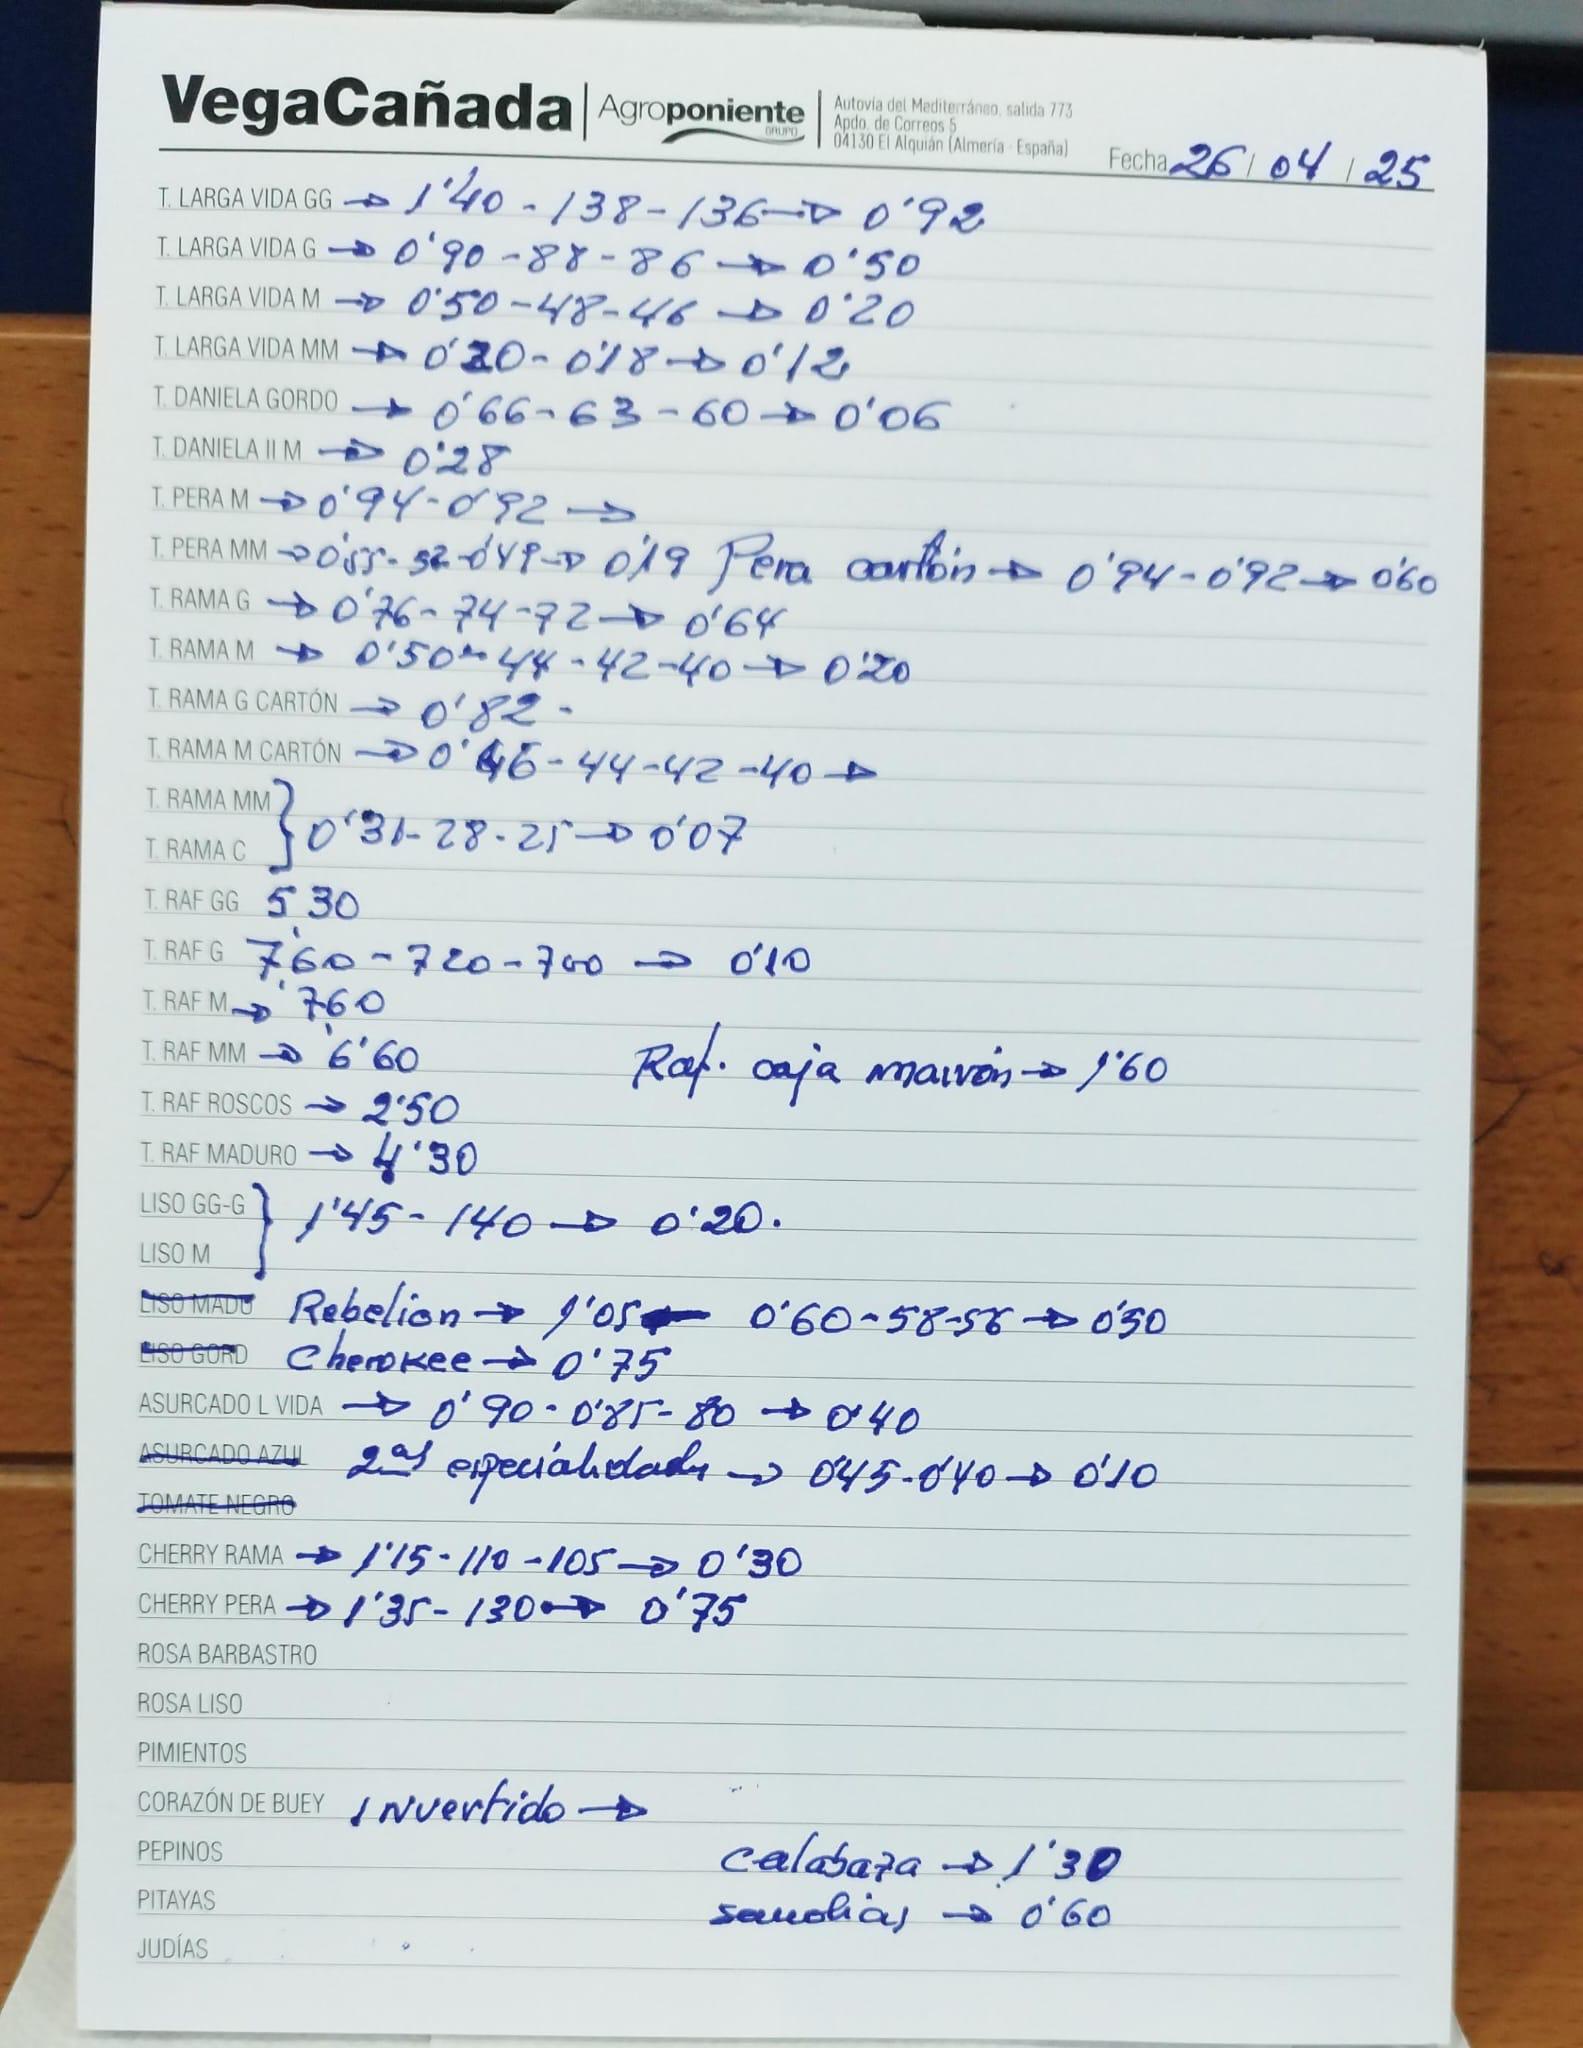 VegaCañada | Agroponiente GRUPO
Autovía del Mediterráneo, salida 773
Apdo. de Correos 5
04130 El Alquián (Almería - España)
Fecha 26 / 04 / 25
T. LARGA VIDA GG → 1'40 - 138 - 136 → 0'92
T. LARGA VIDA G → 0'90 - 88 - 86 → 0'50
T. LARGA VIDA M → 0'50 - 48 - 46 → 0'20
T. LARGA VIDA MM → 0'20 - 0'18 → 0'12
T. DANIELA GORDO → 0'66 - 63 - 60 → 0'06
T. DANIELA II M → 0'28
T. PERA M → 0'94 - 0'92 →
T. PERA MM → 0'55 - 52 - 0'49 → 0'19 Pera cartón → 0'94 - 0'92 → 0'60
T. RAMA G → 0'76 - 74 - 72 → 0'64
T. RAMA M → 0'50 - 44 - 42 - 40 → 0'20
T. RAMA G CARTÓN → 0'82 -
T. RAMA M CARTÓN → 0'46 - 44 - 42 - 40 →
T. RAMA MM
T. RAMA C } 0'31 - 28 - 25 → 0'07
T. RAF GG 5'30
T. RAF G 7'60 - 720 - 700 → 0'10
T. RAF M → 7'60
T. RAF MM → 6'60 Raf. caja marrón → 1'60
T. RAF ROSCOS → 2'50
T. RAF MADURO → 4'30
LISO GG-G } 1'45 - 140 → 0'20.
LISO M
LISO MADU Rebelion → 1'05 0'60 - 58 - 56 → 0'50
LISO GORD Cherokee → 0'75
ASURCADO L VIDA → 0'90 - 0'85 - 80 → 0'40
ASURCADO AZUL 2as especialidades → 0'45 - 0'40 → 0'10
TOMATE NEGRO
CHERRY RAMA → 1'15 - 110 - 105 → 0'30
CHERRY PERA → 1'35 - 130 → 0'75
ROSA BARBASTRO
ROSA LISO
PIMIENTOS
CORAZÓN DE BUEY Invertido →
PEPINOS calabaza → 1'30
PITAYAS sandias → 0'60
JUDÍAS